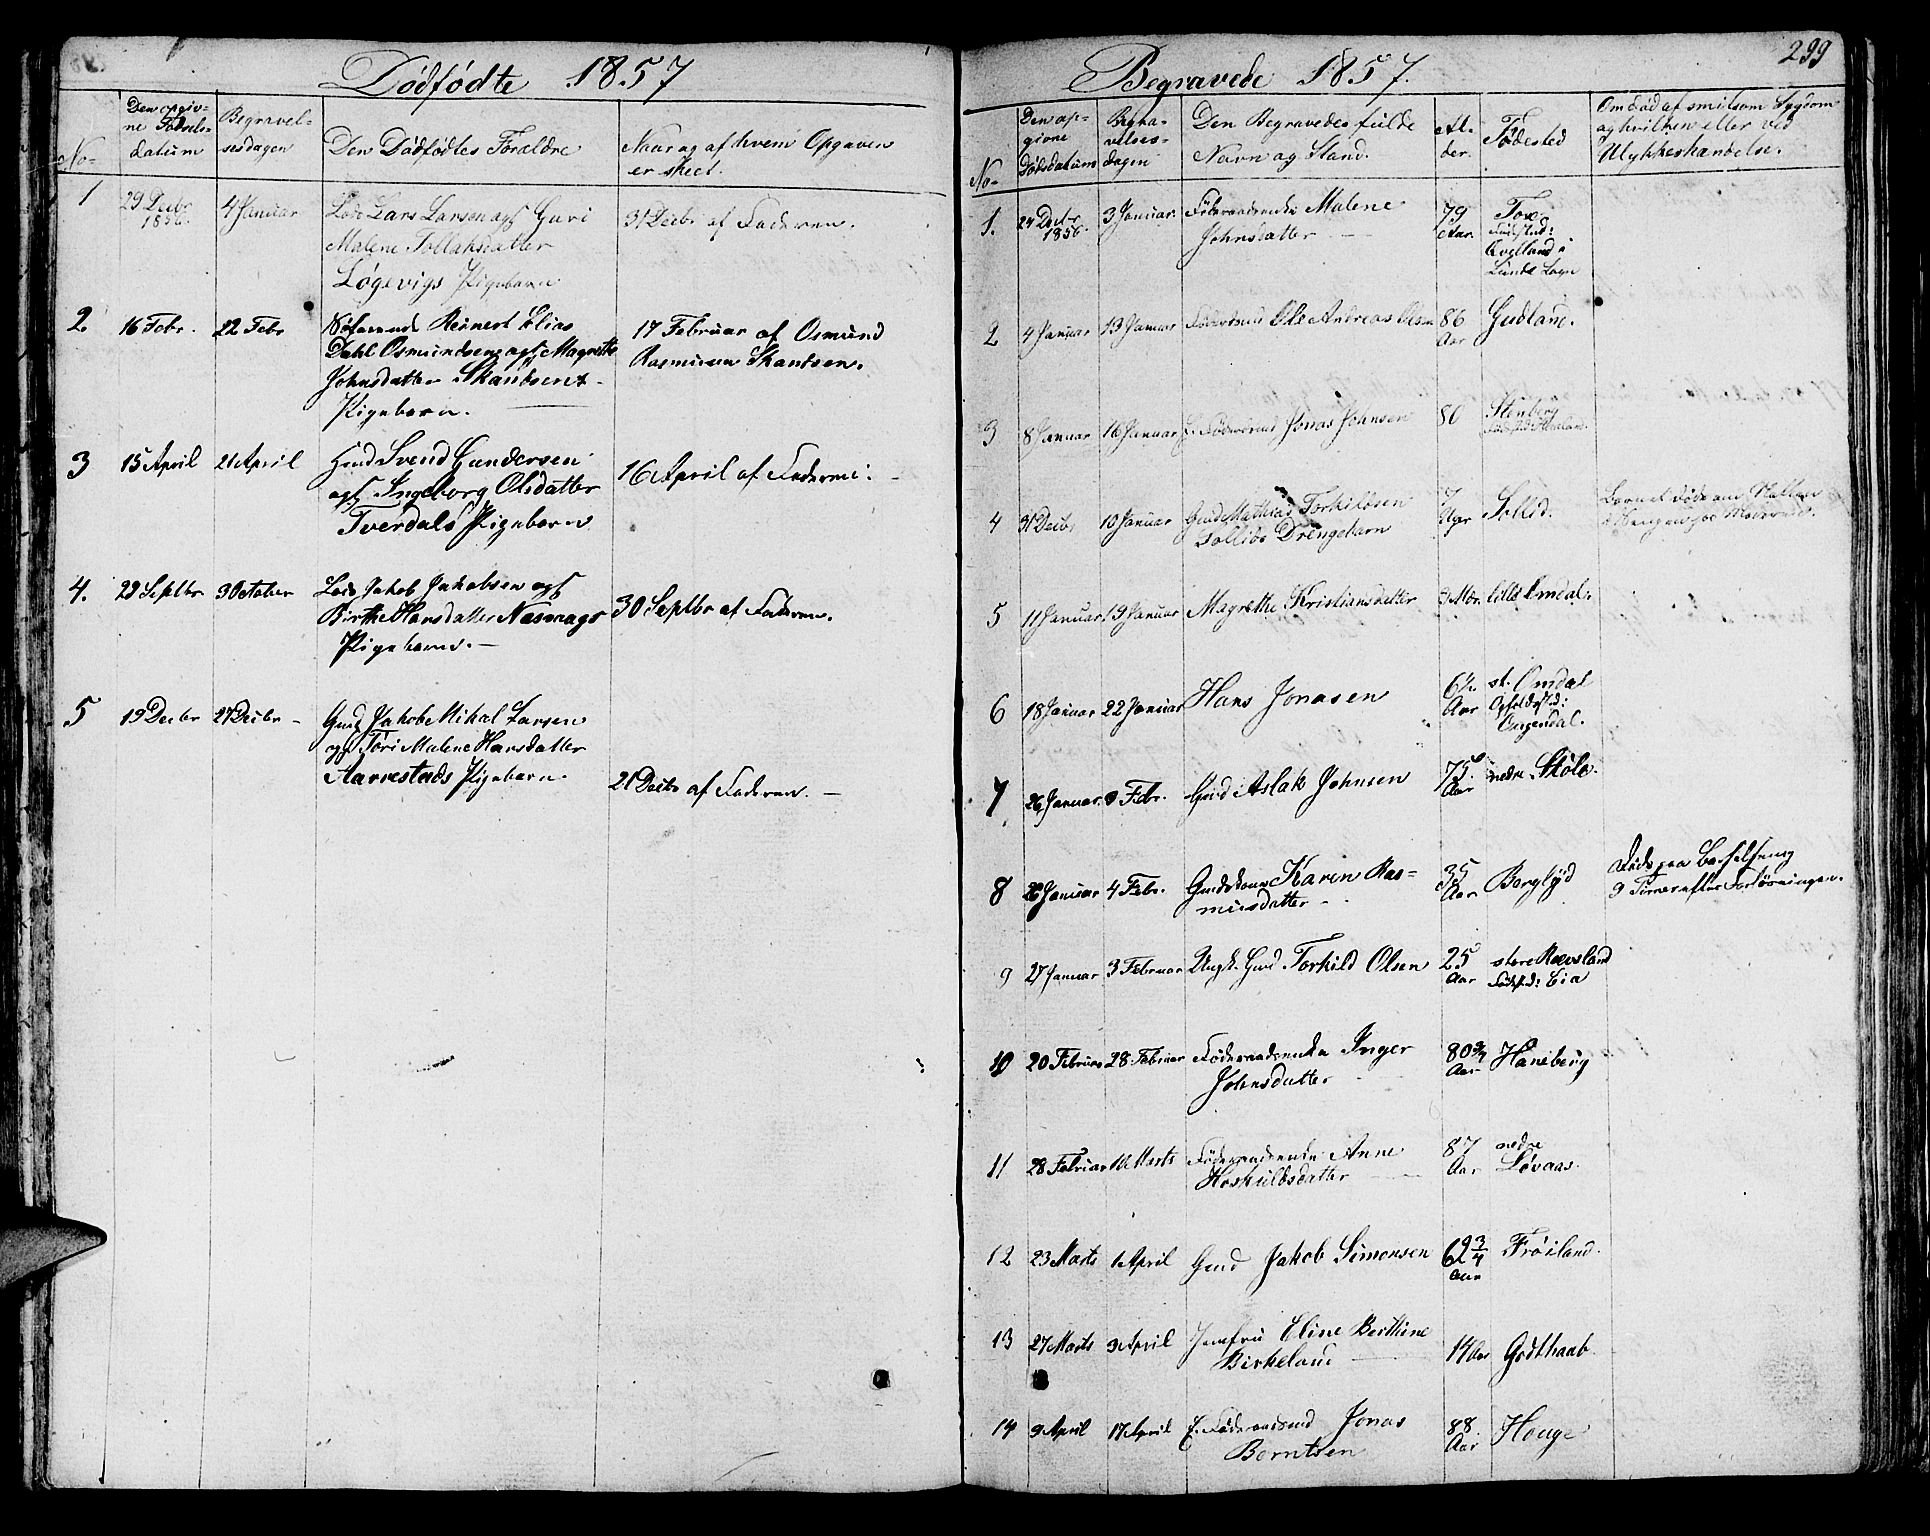 Dødfødte 1857
No
Den opgiv-
ne Fødsels-
datum
Begravel-
sesdagen
Den Dødfødtes Forældre
Naar og af hvem Opgaven
er skeet.
1
29 Decbr
1856.
4 Januar
Lars Larsen og Guri
Malene Tollaksdatter
Løgevigs Pigebarn
31 Decbr af Faderen.
2.
16 Febr.
22 Febr
Reinert Elias
Dahl Osmundsen og Magrethe
Johnsdatter Skandsens
Pigebarn.
17 Februar af Osmund
Rasmussen Skantsen.
3
15 April
21 April
Svend Gundersen
Ingeborg Olsdatter
Tverdals Pigebarn
16 April af Faderen.
4.
28 Septbr
3 October
Jakob Jakobsen og
Birthe Hansdatter Næsvaags
Pigebarn. -
30 Septbr af Faderen.
5
19 Decbr
27 Decbr -
Gmd Jakob Mikal Larsen
og Tøri Malene Hansdatter
Aarrestads Pigebarn.
21 Decbr af Faderen. -
299
Begravede 1857.
No-
Den op-
givne
Dødsdatum
Begra-
velses-
dagen
Den Begravedes fulde
Navn og Stand.
Al-
der.
Fødested
Om død af smitsom Sygdom
og hvilken eller ved
Ulykkeshændelse.
1.
24 Decbr
1856.
3 Januar.
Føderaadsenke Malene
Johnsdatter
79
Aar.
Fødested:
Qvelland i
Lunde Sogn
2
4 Januar
13 Januar
Ole Andreas Olsen
86
Aar
Gudland.
3
8 Januar
16 Januar
Jonas Johnsen
80
Stenberg
4
31 Decbr
10 Januar
Gmd Mathias Torkildsen
Sollids Drengebarn
7
Uger
Sollid.
Barnet døde om Natten
i Sengen hos Moderen.
5
11 Januar
19 Januar
Magrethe Kristiansdatter
lille Omdal.
6
18 Januar
22 Januar
Hans Jonasen
Aar
st. Omdal
Opholdssted:
7
26 Januar.
3 Febr.
Gmd Aslak Johnsen
75
Aar
nedre Støle.
8
26 Januar
4 Febr.
Gmdskone Karen Ras-
musdatter
35
Aar
Berglyd
Døde paa Barselseng
9 Timer efter Forløsningen.
9
27 Januar
3 Februar
Ungk. Gmd Torkild Olsen
25
Aar
store Rævsland
Fødested: Eia
10
20 Februar
28 Februar
Føderaadsenke Inger
Johnsdatter
80 3/4
Aar
Haneberg
11
28 Februar
10 Marts
Føderaadsenke Anne
Hoskuldsdatter
87
Aar
nedre
Løvaas.
12
23 Marts
1 April
Gmd Jakob Simonsen
62 3/4
Aar
Frøiland.
13
27 Marts
3 April
Jomfru Eline Berthine
Birkeland
19 Aar
Godthaab.
14
9 April
17 April
Jonas
Berntsen
88
Aar
Houge